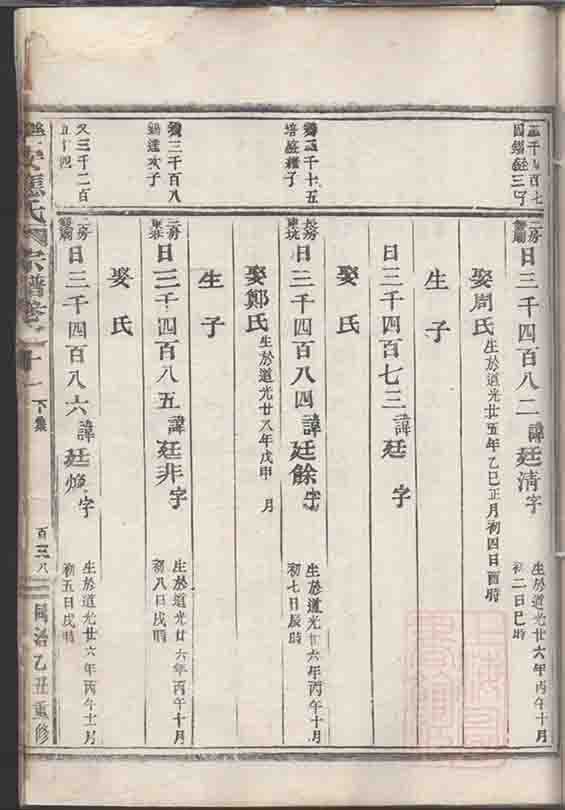 二房
曰三千四百八二諱廷清字
生於道光廿六年丙午十月
初二日巳時
娶周氏生於道光廿五年乙巳正月初四日酉時
生子
曰三千四百七三諱廷字
娶氏
千十五
長房
曰三千四百八四諱廷餘字
生於道光廿六年丙午十月
初七日辰時
娶鄭氏生於道光廿八年戊申月
生子
三千百八
次子
三房
曰三千四百八五諱廷非字
生於道光廿六年丙午十月
初八日戌時
娶氏
又三千二百
五十四
二房
曰三千四百八六諱廷字
生於道光廿六年丙午十月
初五日戌時
氏宗譜卷十一下集
百三八
同治乙丑重修